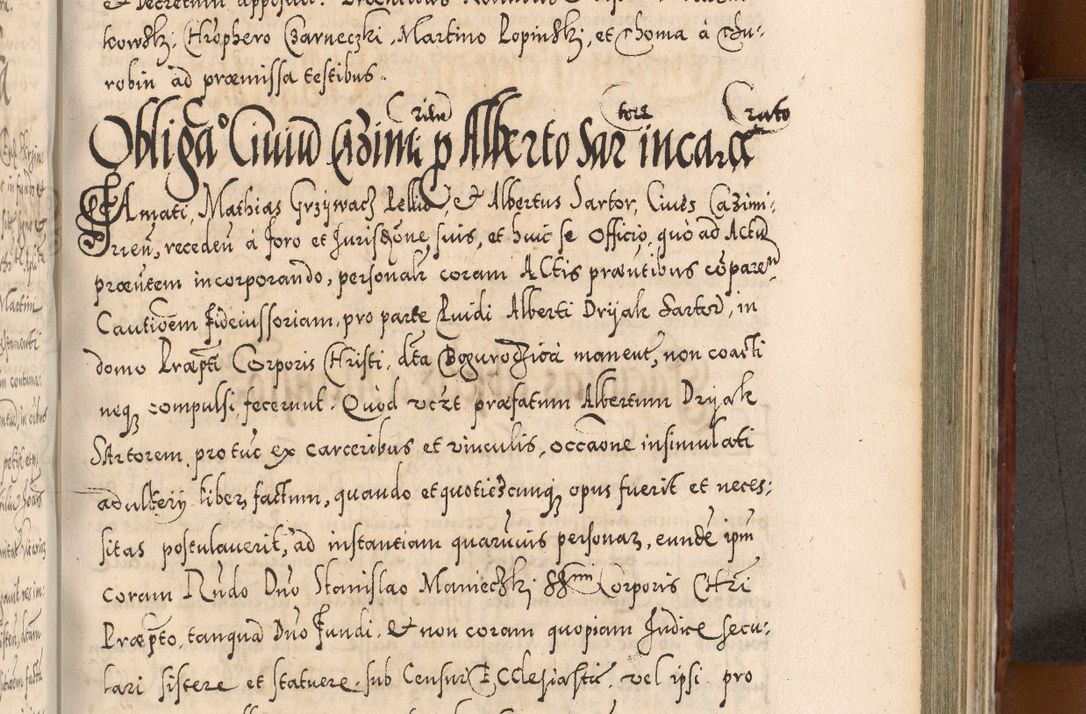 kowski, Chrophero Czarneczki, Martino Lopinski, et Thoma à Thu-
robin ad præmissa testibus.
Obligãо Civiũ Cazimiriẽ p Alberto Sartore incarcerato
Famati, Mathias Grzywacz Pellio, et Albertus Sartor, Cives Cazimi-
rieñ, recedeñ á foro et Jurisdõne suis, et huic se Officio, quò ad Actũ
præntem incorporando, personalr coram Actis præntibus cõpareñ
Cautioem fideiussoriam, pro parte Prvidi Alberti Drijak Sartor, in
domo Præpti Corporis Christi, dta Bogurodzica manent, non coacti
neq compulsi, fecerunt. Quòd vczt præfatum Albertum Drijak
Sartorem pro tuc ex carceribus et vinculis, occãone insimulati
adulterij liber factum, quando et quotiescunq opus fuerit et neces-
sitas postulaverit, ad instantiam quaruvis personar, eundẽ ipm
coram Rndo Dno Stanislao Manieczki SSmi Corporis Chri
Præpto, tanquã Dno Fundi, et non coram quopiam Judice secu-
lari sistere et statuere sub Censuris Ecclesiastic. vel ipsi pro